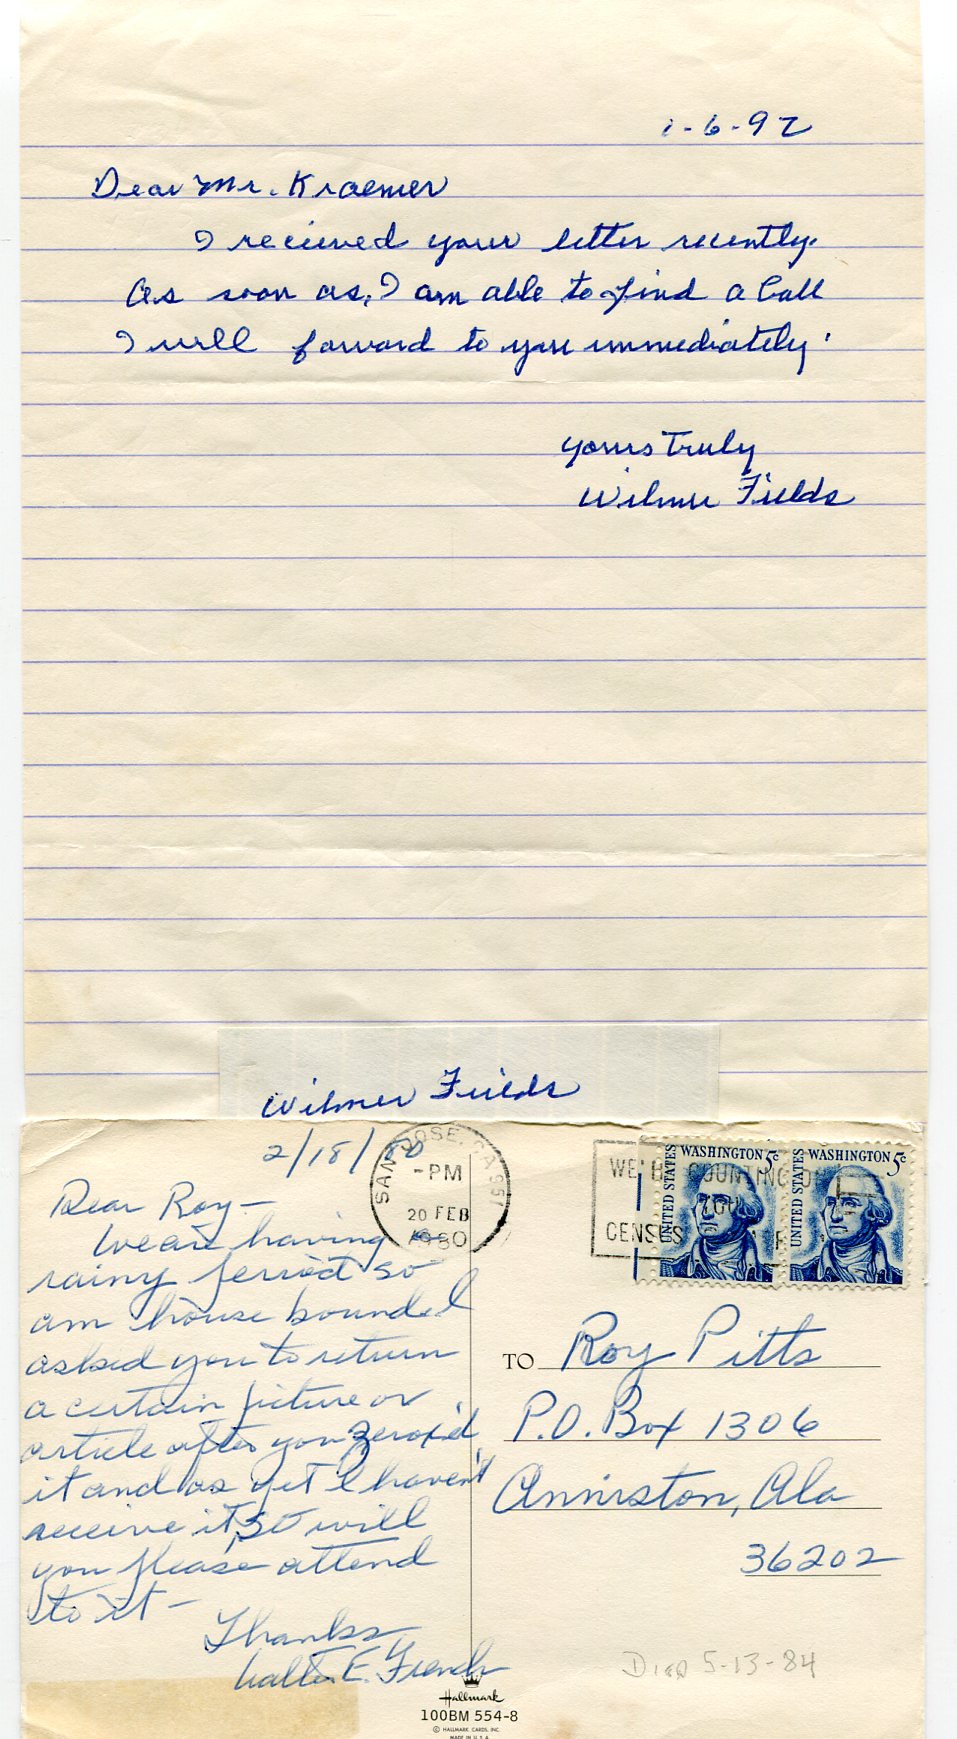 1-6-92
Dear Mr. Kraemer
I recieved your letter recently.
As soon as, I am able to find a ball
I will forward to you immediately.
Yours Truly
Wilmer Fields
Wilmer Fields
2/18/80
SAN JOSE, CA 951
-PM
20 FEB
1980
WE'LL BE COUNTING ON
YOU
CENSUS
UNITED STATES
WASHINGTON 5c
UNITED STATES
WASHINGTON 5c
Dear Roy—
We are having a
rainy period so
am house bound. I
asked you to return
a certain picture or
article after you zerox'd
it and as yet I haven't
receive it, so will
you please attend
to it—
Thanks
Walter E. French
TO Roy Pitts
P.O. Box 1306
Anniston, Ala
36202
Died 5-13-84
Hallmark
100BM 554-8
© HALLMARK CARDS, INC.
MADE IN U.S.A.